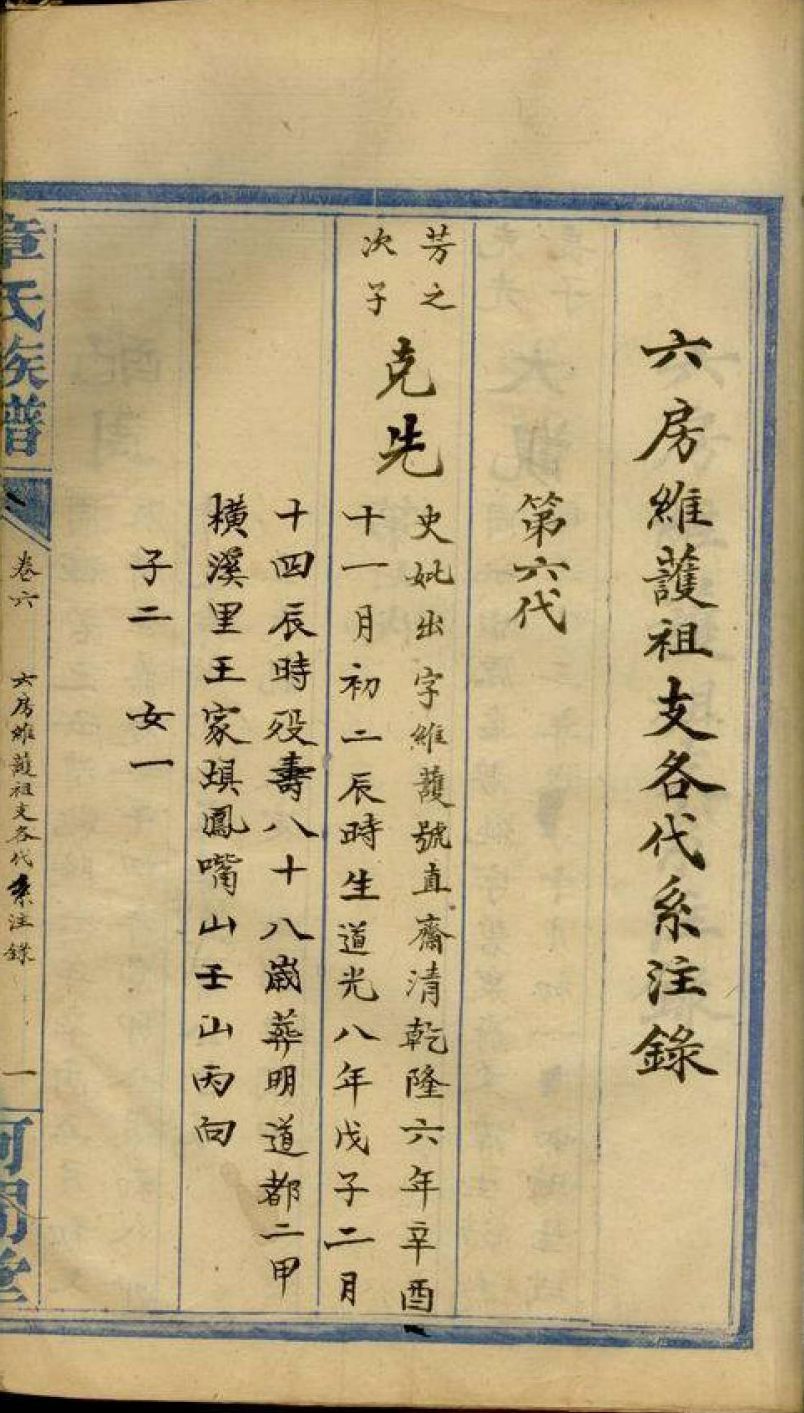 六房維護祖支各代系注錄
第六代
芳之
次子
克先
史妣出字維護號直齋清乾隆六年辛酉
十一月初二辰時生道光八年戊子二月
十四辰時歿壽八十八歲葬明道都二甲
橫溪里王家塤鳳嘴山壬山丙向
子二 女一
章氏族譜
卷六
六房維護祖支各代系注錄
一